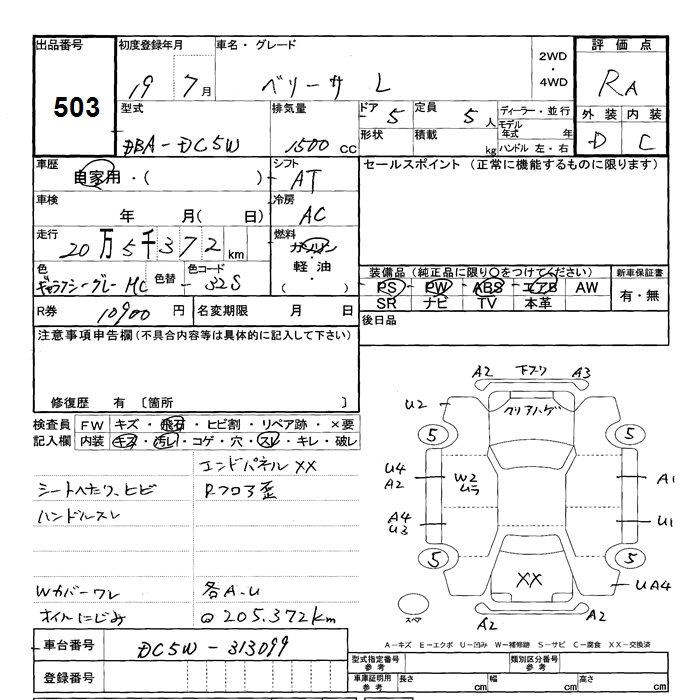 出品番号
503
初度登録年月
19 7月
車名・グレード
ベリーサ L
2WD
・
4WD
評価点
RA
外装 内装
D C
型式
DBA-DC5W
排気量
1500 cc
ドア 5
定員 5人
ディーラー・並行
モデル年式 年
形状
積載 kg
ハンドル 左・右
車歴
自家用・( )
シフト
AT
セールスポイント (正常に機能するものに限ります)
車検
年 月( 日)
冷房
AC
走行
20万5千372km
燃料
ガソリン
・
軽油
・
( )
色
ギャラクシーグレーMC
色替
色コード
32S
装備品(純正品に限り○をつけてください)
PS・PW・ABS・エアB・AW
SR ナビ TV 本革
新車保証書
有・無
R券 10900 円
名変期限 月 日
後日品
注意事項申告欄(不具合内容等は具体的に記入して下さい)
修復歴 有 〔箇所 〕
検査員記入欄
FW キズ・飛石・ヒビ割・リペア跡・×要
内装 キズ・汚レ・コゲ・穴・スレ・キレ・破レ
エンドパネルXX
シートへたり、ヒビ
Rフロア歪
ハンドルスレ
Wカバーワレ
各A.U
オイルにじみ
◎205.372km
A2 下スリ A3
U2
クリアハゲ
5 5
U4
A2
W2
ムラ
A1
A4
U3
U1
5 5
XX
UA4
スペア
A2 A2
A-キズ E-エクボ U-凹み W-補修跡 S-サビ C-腐食 XX-交換済
車台番号
DC5W-313099
登録番号
型式指定番号
参考
類別区分番号
参考
車庫証明用
参考
長さ cm
幅 cm
高さ cm